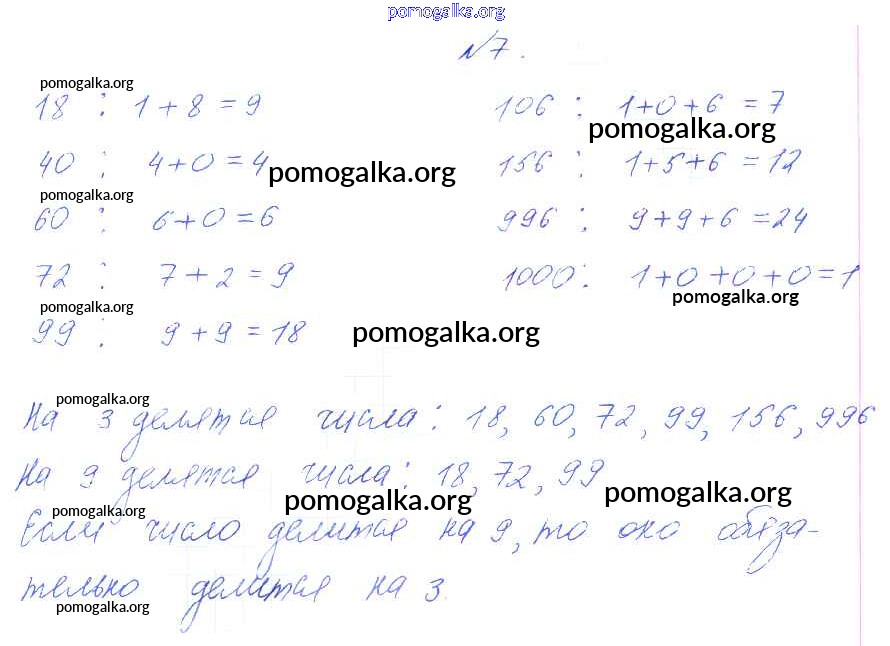 pomogalka.org
№7.
pomogalka.org
18 : 1 + 8 = 9
106 : 1+0+6 = 7
pomogalka.org
40 : 4+0 = 4
pomogalka.org
156 : 1+5+6 = 12
pomogalka.org
60 : 6+0 = 6
996 : 9+9+6 = 24
72 : 7 + 2 = 9
1000 : 1+0+0+0=1
pomogalka.org
pomogalka.org
99 : 9 + 9 = 18
pomogalka.org
pomogalka.org
На 3 делятся числа: 18, 60, 72, 99, 156, 996
На 9 делятся числа: 18, 72, 99
pomogalka.org
pomogalka.org
pomogalka.org
Если число делится на 9, то оно обяза-
тельно делится на 3.
pomogalka.org